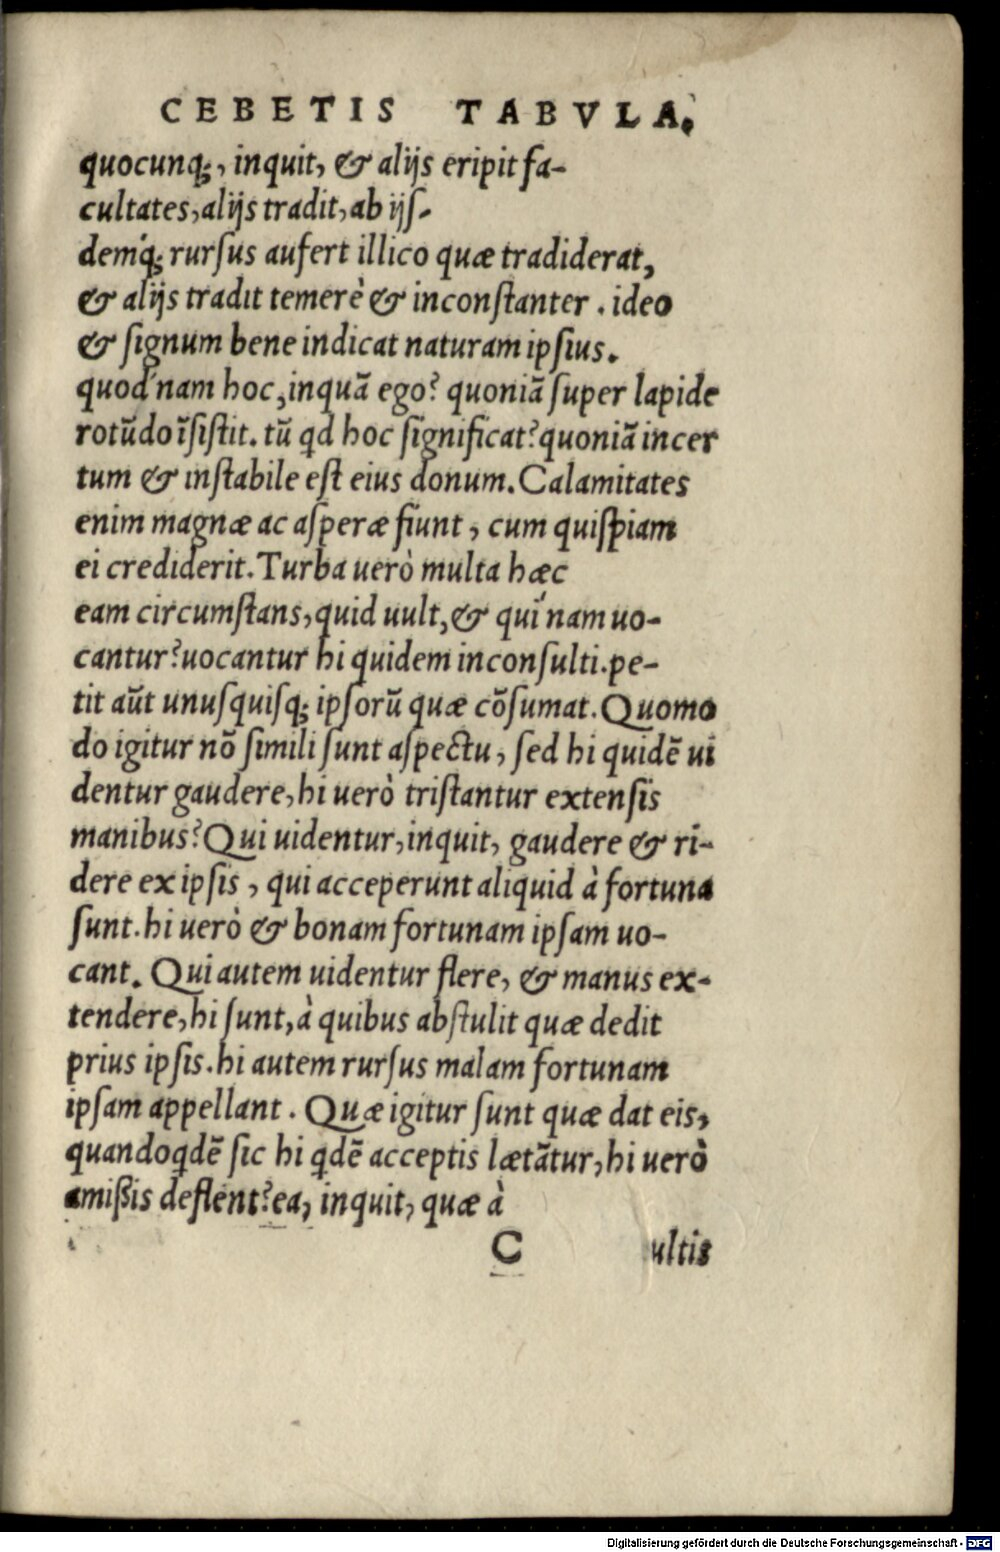 CEBETIS TABVLA.
quocunq;, inquit, & alijs eripit fa-
cultates, alijs tradit, ab ijſ-
demq́; rurſus aufert illico quæ tradiderat,
& alijs tradit temerè & inconſtanter. ideo
& ſignum bene indicat naturam ipſius.
quod'nam hoc, inquā ego? quoniā ſuper lapide
rotūdo īſiſtit. tū qd hoc ſignificat? quoniā incer
tum & inſtabile eſt eius donum. Calamitates
enim magnæ ac aſperæ fiunt, cum quiſpiam
ei crediderit. Turba uerò multa hæc
eam circumſtans, quid uult, & qui'nam uo-
cantur? uocantur hi quidem inconſulti. pe-
tit aūt unuſquiſq; ipſorū quæ cōſumat. Quomo
do igitur nō ſimili ſunt aſpectu, ſed hi quidē ui
dentur gaudere, hi uerò triſtantur extenſis
manibus? Qui uidentur, inquit, gaudere & ri-
dere ex ipſis, qui acceperunt aliquid à fortuna
ſunt. hi uerò & bonam fortunam ipſam uo-
cant. Qui autem uidentur flere, & manus ex-
tendere, hi ſunt, à quibus abſtulit quæ dedit
prius ipſis. hi autem rurſus malam fortunam
ipſam appellant. Quæ igitur ſunt quæ dat eis,
quandoqdē ſic hi qdē acceptis lætātur, hi uerò
amißis deflent? ea, inquit, quæ à
C ultis
Digitalisierung gefördert durch die Deutsche Forschungsgemeinschaft - DFG